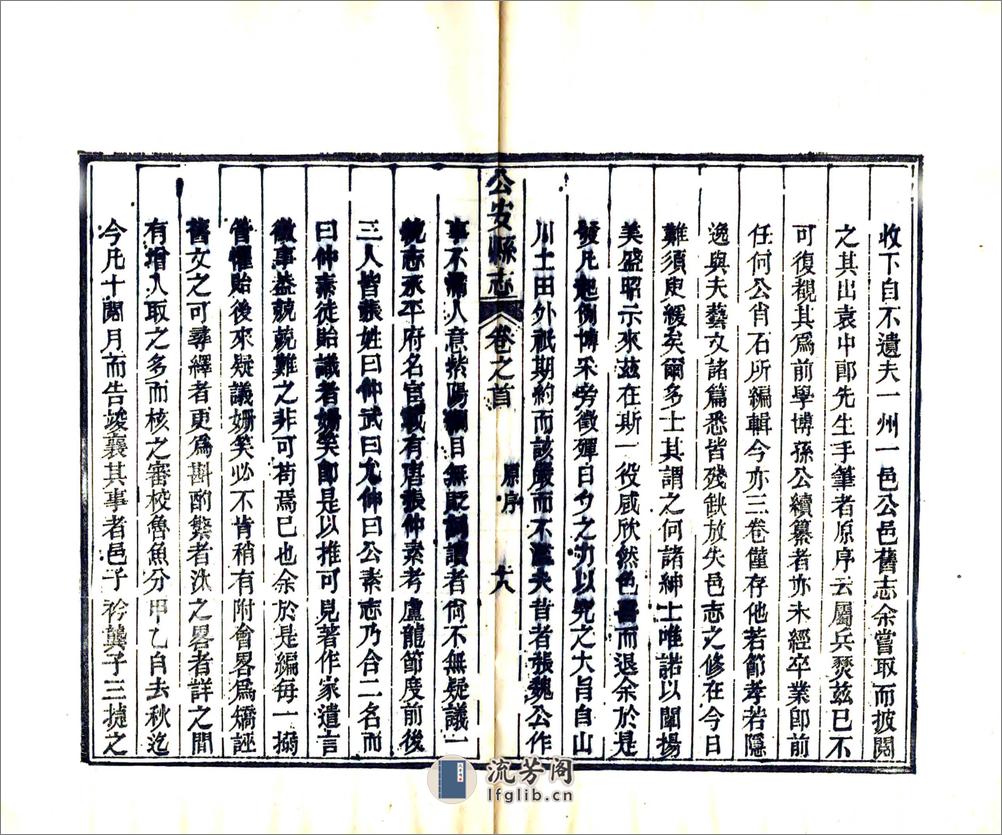 收下自不遺夫一州一邑公邑舊志余嘗取而披閱
之其出袁中郎先生手筆者原序云屬兵燹茲已不
可復覩其爲前學博孫公續纂者亦未經卒業卽前
任何公肖石所編輯今亦三卷僅存他若節孝若隱
逸與夫藝文諸篇悉皆殘缺放失邑志之修在今日
難須臾緩矣爾多士其謂之何諸紳士唯諾以闡揚
美盛昭示來茲在斯一役咸欣然色喜而退余於是
發凡起例博采旁徵殫日夕之力以究之大旨自山
川土田外祇期約而該嚴而不濫夫昔者張魏公作
公安縣志 卷之首 原序 十八
事不滿人意紫陽綱目無貶詞讀者尚不無疑議一
統志永平府名官載有唐張仲素考盧龍節度前後
三人皆張姓曰仲武曰允仲曰公素志乃合二名而
曰仲素徒貽議者姍笑卽是以推可見著作家遺言
徵事益兢兢難之非可苟焉已也余於是編每一搦
管懼貽後來疑議姍笑必不肯稍有附會畧爲矯誣
舊文之可尋繹者更爲斟酌縏者汰之畧者詳之間
有增入取之多而核之審校魯魚分甲乙自去秋迄
今凡十閱月而告竣襄其事者邑子衿龔子三捷之
流芳阁
lfglib.cn